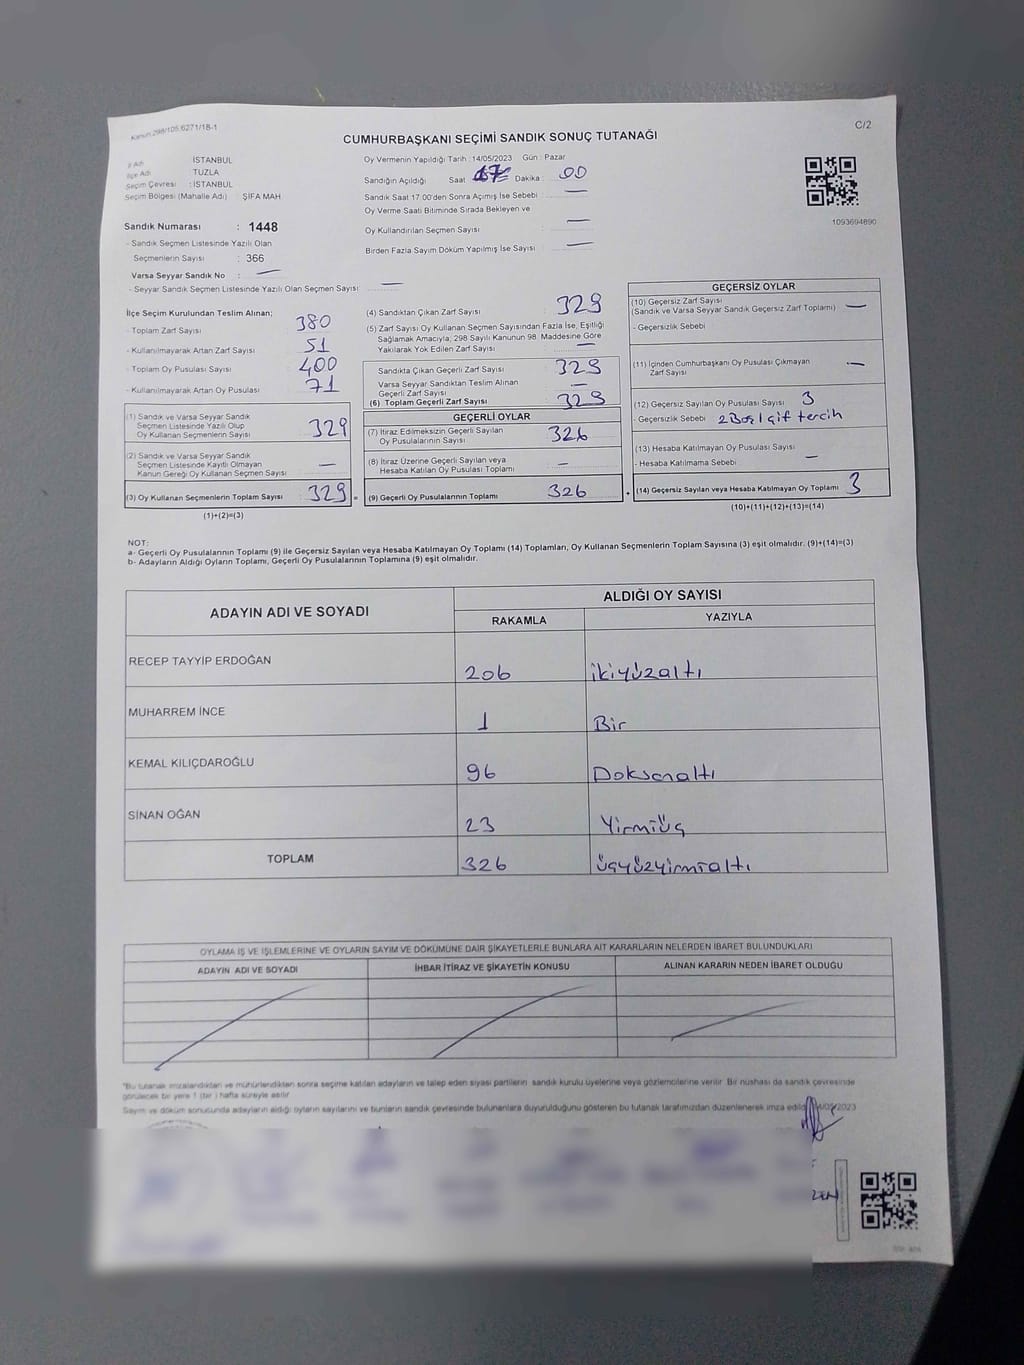 Kanun 298/105,6271/18-1
C/2
CUMHURBAŞKANI SEÇİMİ SANDIK SONUÇ TUTANAĞI
İl Adı İSTANBUL
İlçe Adı TUZLA
Seçim Çevresi : İSTANBUL
Seçim Bölgesi (Mahalle Adı) ŞİFA MAH
Sandık Numarası : 1448
- Sandık Seçmen Listesinde Yazılı Olan
Seçmenlerin Sayısı : 366
Varsa Seyyar Sandık No : —
- Seyyar Sandık Seçmen Listesinde Yazılı Olan Seçmen Sayısı: —
Oy Vermenin Yapıldığı Tarih : 14/05/2023 Gün : Pazar
Sandığın Açıldığı Saat 17 Dakika : 00
Sandık Saat 17.00'den Sonra Açımış İse Sebebi —
Oy Verme Saati Bitiminde Sırada Bekleyen ve
Oy Kullandırılan Seçmen Sayısı : —
Birden Fazla Sayım Döküm Yapılmış İse Sayısı : —
1093694890
İlçe Seçim Kurulundan Teslim Alınan;
- Toplam Zarf Sayısı : 380
- Kullanılmayarak Artan Zarf Sayısı : 51
- Toplam Oy Pusulası Sayısı : 400
- Kullanılmayarak Artan Oy Pusulası : 71
(1) Sandık ve Varsa Seyyar Sandık
Seçmen Listesinde Yazılı Olup
Oy Kullanan Seçmenlerin Sayısı 329
(2) Sandık ve Varsa Seyyar Sandık
Seçmen Listesinde Kayıtlı Olmayan
Kanun Gereği Oy Kullanan Seçmen Sayısı —
(3) Oy Kullanan Seçmenlerin Toplam Sayısı 329 =
(1)+(2)=(3)
(4) Sandıktan Çıkan Zarf Sayısı : 329
(5) Zarf Sayısı Oy Kullanan Seçmen Sayısından Fazla İse, Eşitliği
Sağlamak Amacıyla; 298 Sayılı Kanunun 98. Maddesine Göre
Yakılarak Yok Edilen Zarf Sayısı —
Sandıkta Çıkan Geçerli Zarf Sayısı : 329
Varsa Seyyar Sandıktan Teslim Alınan
Geçerli Zarf Sayısı —
(6) Toplam Geçerli Zarf Sayısı : 329
GEÇERLİ OYLAR
(7) İtiraz Edilmeksizin Geçerli Sayılan
Oy Pusulalarının Sayısı : 326
(8) İtiraz Üzerine Geçerli Sayılan veya
Hesaba Katılan Oy Pusulası Toplamı —
(9) Geçerli Oy Pusulalarının Toplamı 326 +
GEÇERSİZ OYLAR
(10) Geçersiz Zarf Sayısı
(Sandık ve Varsa Seyyar Sandık Geçersiz Zarf Toplamı) —
- Geçersizlik Sebebi
(11) İçinden Cumhurbaşkanı Oy Pusulası Çıkmayan
Zarf Sayısı —
(12) Geçersiz Sayılan Oy Pusulası Sayısı 3
- Geçersizlik Sebebi 2 Boş 1 çift tercih
(13) Hesaba Katılmayan Oy Pusulası Sayısı
- Hesaba Katılmama Sebebi —
(14) Geçersiz Sayılan veya Hesaba Katılmayan Oy Toplamı 3
(10)+(11)+(12)+(13)=(14)
NOT:
a- Geçerli Oy Pusulalarının Toplamı (9) ile Geçersiz Sayılan veya Hesaba Katılmayan Oy Toplamı (14) Toplamları, Oy Kullanan Seçmenlerin Toplam Sayısına (3) eşit olmalıdır. (9)+(14)=(3)
b- Adayların Aldığı Oyların Toplamı, Geçerli Oy Pusulalarının Toplamına (9) eşit olmalıdır.
ADAYIN ADI VE SOYADI
ALDIĞI OY SAYISI
RAKAMLA YAZIYLA
RECEP TAYYİP ERDOĞAN 206 ikiyüzaltı
MUHARREM İNCE 1 Bir
KEMAL KILIÇDAROĞLU 96 Doksanaltı
SİNAN OĞAN 23 Yirmiüç
TOPLAM 326 üçyüzyirmialtı
OYLAMA İŞ VE İŞLEMLERİNE VE OYLARIN SAYIM VE DÖKÜMÜNE DAİR ŞİKAYETLERLE BUNLARA AİT KARARLARIN NELERDEN İBARET BULUNDUKLARI
ADAYIN ADI VE SOYADI İHBAR İTİRAZ VE ŞİKAYETİN KONUSU ALINAN KARARIN NEDEN İBARET OLDUĞU
*Bu tutanak imzalandıktan ve mühürlendikten sonra seçime katılan adayların ve talep eden siyasi partilerin sandık kurulu üyelerine veya gözlemcilerine verilir. Bir nüshası da sandık çevresinde
görülecek bir yere 1 (bir) hafta süreyle asılır.
Sayım ve döküm sonucunda adayların aldığı oyların sayılarını ve bunların sandık çevresinde bulunanlara duyurulduğunu gösteren bu tutanak tarafımızdan düzenlenerek imza edildi /05/2023